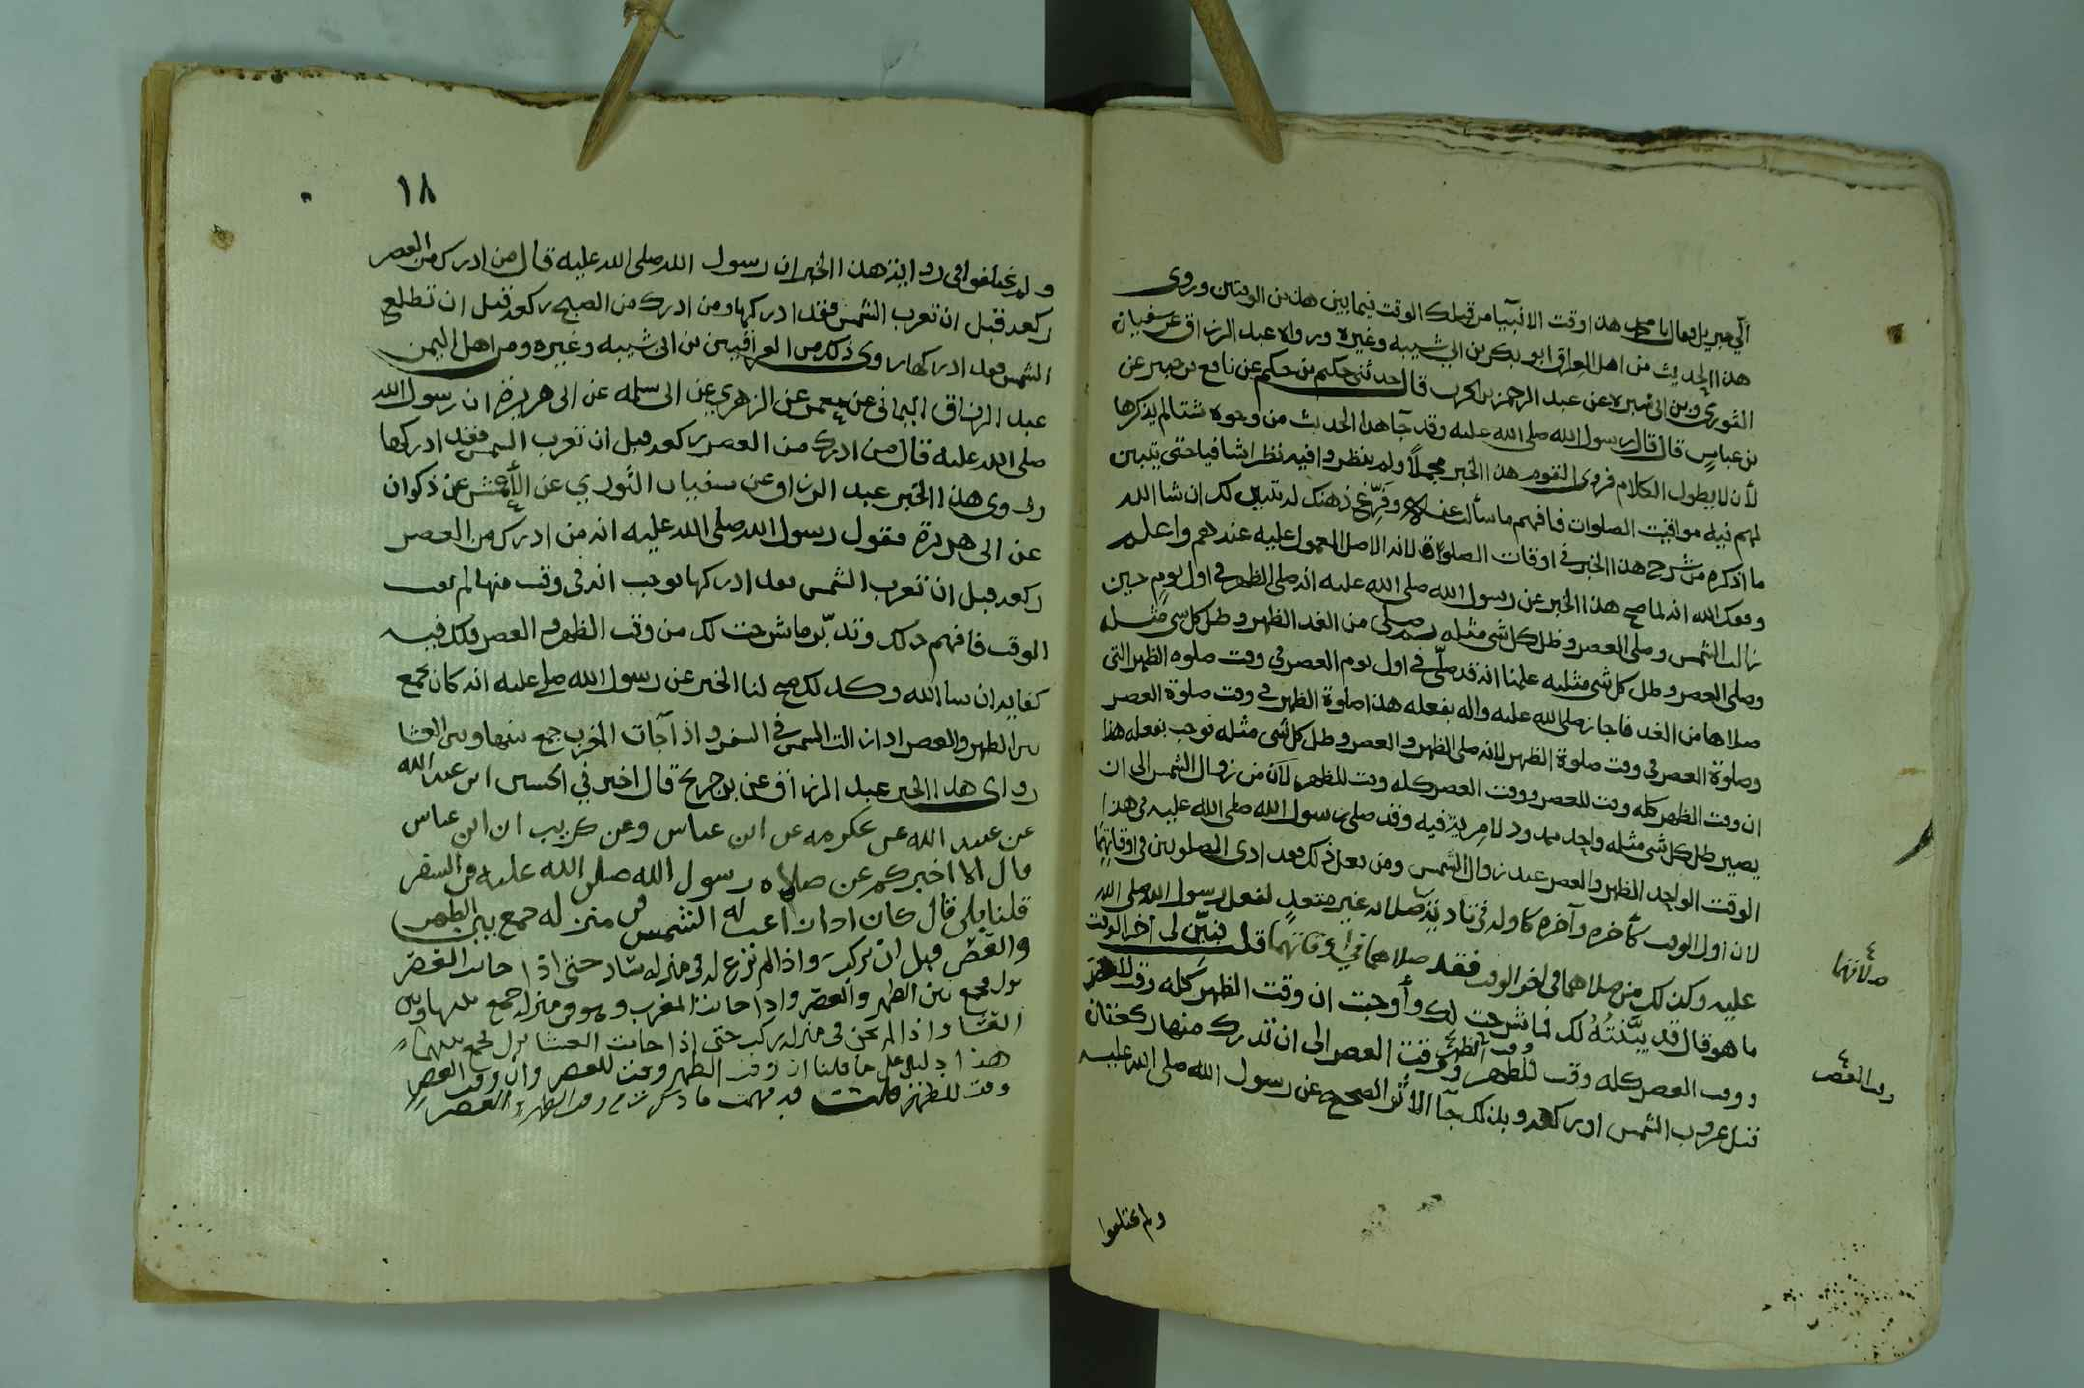 الي جبريل فقال يا محمد هذا وقت الانبيآء من قبلك الوقت فيما بين هذين الوقتين وروى
هذا الحديث من اهل العراق ابو بكر بن ابي شيبه وغيره ورواه عبد الرزاق عن سفيان
الثوري وبن ابي سبره عن عبد الرحمن بن الحرث قال حدثني حكيم بن حكيم عن نافع بن جبير عن
بن عباس قال قال رسول الله صلى الله عليه وقد جآ هذا الحديث من وجوه شتا لم يذكرها
لأن لا يطول الكلام فروى القوم هذا الخبر مجملاً ولم ينظروا فيه نظرا شافيا حتى يتبين
لهم فيه مواقيت الصلوات فافهم ما سألت عنه وفرّغ ذهنك له تبين لك ان شا الله
ما اذكره من شرح هذا الخبر في اوقات الصلوة لانه الاصل المعمول عليه عندهم واعلم
وفقك الله انه لما صح هذا الخبر عن رسول الله صلى الله عليه انه صلى الظهر في اول يوم حين
زالت الشمس وصلى العصر وظل كل شي مثله ثم صلى من الغد الظهر وظل كل شي مثله
وصلى العصر وظل كل شي مثليه علمنا انه قد صلّى في اول يوم العصر في وقت صلوة الظهر التي
صلاها من الغد فاجاز صلى الله عليه واله بفعله هذا صلوة الظهر في وقت صلوة العصر
وصلوة العصر في وقت صلوة الظهر لانه صلى الظهر والعصر وظل كل شي مثله فوجب بفعله هذا
ان وقت الظهر كله وقت للعصر ووقت العصر كله وقت للظهر لان من زوال الشمس الى ان
يصير ظل كل شي مثله واحد ممدود لا مرية فيه وقد صلى رسول الله صلى الله عليه في هذا
الوقت الواحد الظهر والعصر عند زوال الشمس ومن فعل ذلك فقد ادى الصلوتين في اوقاتهما
لان اول الوقت كآخره وآخره كاوله في تادية صلاته غير متعد لفعل رسول الله صلى الله
عليه وكذلك من صلاهما في اخر الوقت فقد صلاهما في اوقاتهما قلت فبيّن لي آخر الوقت
ما هو قال قد بيَّنتُهُ لك فيما شرحت لك وأوجبت ان وقت الظهر كله وقت للعصر
ووقت العصر كله وقت للظهر ووقت الظهر وقت العصر الى ان تدرك منها ركعتان
قبل غروب الشمس او ركعه وبذلك جآ الأثر الصحيح عن رسول الله صلى الله عليه
صلاتها
وقت العصر
ولم يختلفوا
١٨
ولم يختلفوا في رواية هذا الخبر ان رسول الله صلى الله عليه قال من ادرك من العصر
ركعه قبل ان تغرب الشمس فقد ادركها ومن ادرك من الصبح ركعه قبل ان تطلع
الشمس فقد ادركها روى ذلك من العراقيين بن ابي شيبه وغيره ومن اهل اليمن
عبد الرزاق اليماني عن معمر عن الزهري عن ابي سلمه عن ابي هريرة ان رسول الله
صلى الله عليه قال من ادرك من العصر ركعه قبل ان تغرب الشمس فقد ادركها
وروى هذا الخبر عبد الرزاق عن سفيان الثوري عن الأعمش عن ذكوان
عن ابي هريرة فقول رسول الله صلى الله عليه انه من ادرك من العصر
ركعه قبل ان تغرب الشمس فقد ادركها يوجب انه في وقت منها لم يفت
الوقت فافهم ذلك وتدبّر ما شرحت لك من وقت الظهر والعصر فلك فيه
كفاية ان شا الله وكذلك صح لنا الخبر عن رسول الله صلى عليه انه كان يجمع
بين الظهر والعصر اذا زالت الشمس في السفر واذا جآت المغرب جمع بينها وبين العشا
روى هذا الخبر عبد الرزاق عن بن جريج قال اخبرني الحسين ابن عبد الله
عن عبيد الله عن عكرمه عن ابن عباس وعن كريب ان ابن عباس
قال الا اخبركم عن صلاة رسول الله صلى الله عليه في السفر
قلنا بلى قال كان اذا زاغت له الشمس في منزله جمع بين الظهر
والعصر قبل ان يركب واذا لم تزغ له في منزله سار حتى اذا حانت العصر
نزل فجمع بين الظهر والعصر واذا حانت المغرب وهو في منزله جمع بينها وبين
العشا واذا لم تحن في منزله ركب حتى اذا حانت العشا نزل فجمع بينهما
هذا دليل على ما قلنا ان وقت الظهر وقت للعصر وان وقت العصر
وقت للظهر قلت قد فهمت ما ذكرت في وقت الظهر والعصر